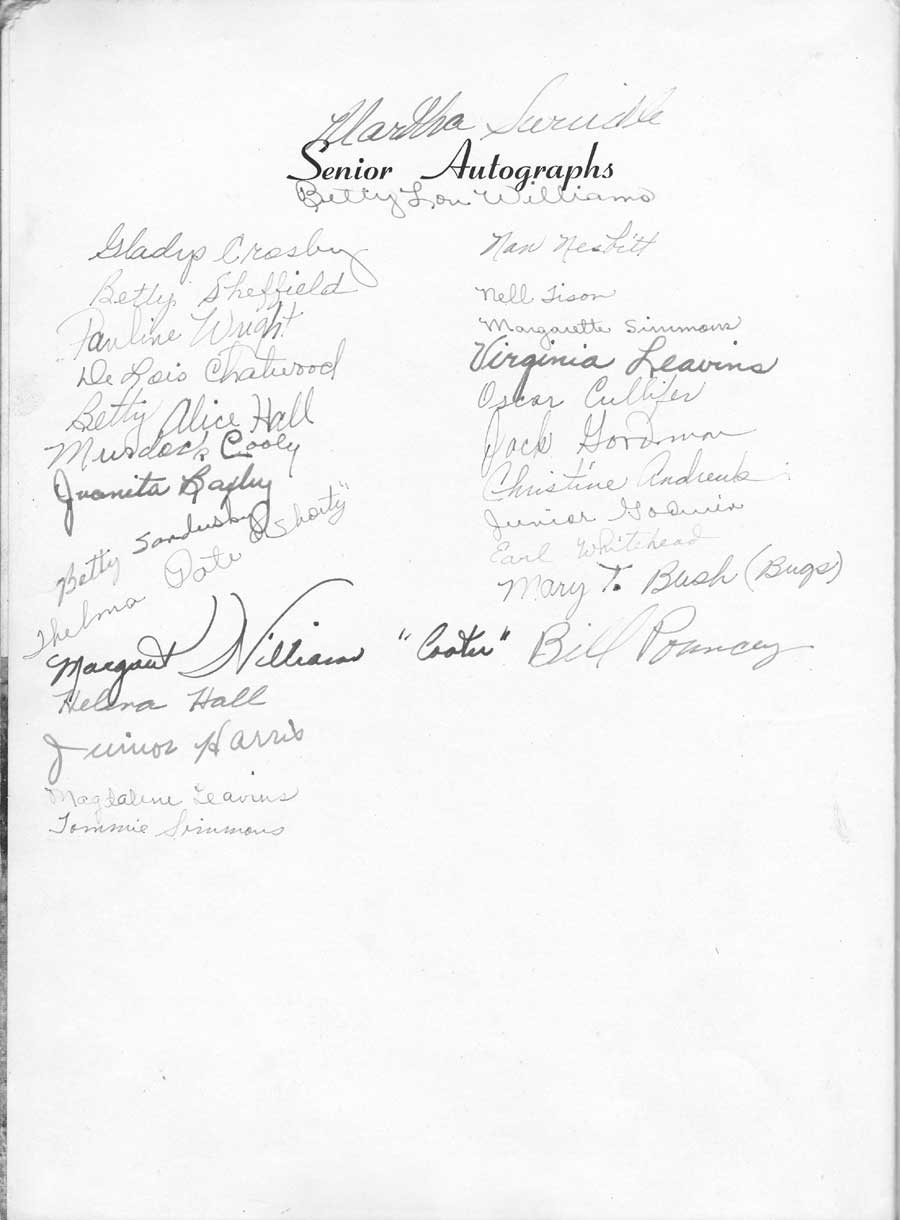 Martha Swindle
Senior Autographs
Betty Lou Williams
Gladys Crosby
Betty Sheffield
Pauline Wright
DeLois Chatwood
Betty Alice Hall
Murdock Cooly
Juanita Bagby
Betty Sandusky
Thelma Pate "Shorty"
Margaret Williams "Cooter"
Helena Hall
Junior Harris
Magdalene Leavins
Tommie Simmons
Nan Nesbitt
Nell Tison
Margarette Simmons
Virginia Leavins
Oscar Cullifer
Jack
Christine Andrews
Junior Godwin
Earl Whitehead
Mary T. Bush (Bugs)
Bill Pouncey